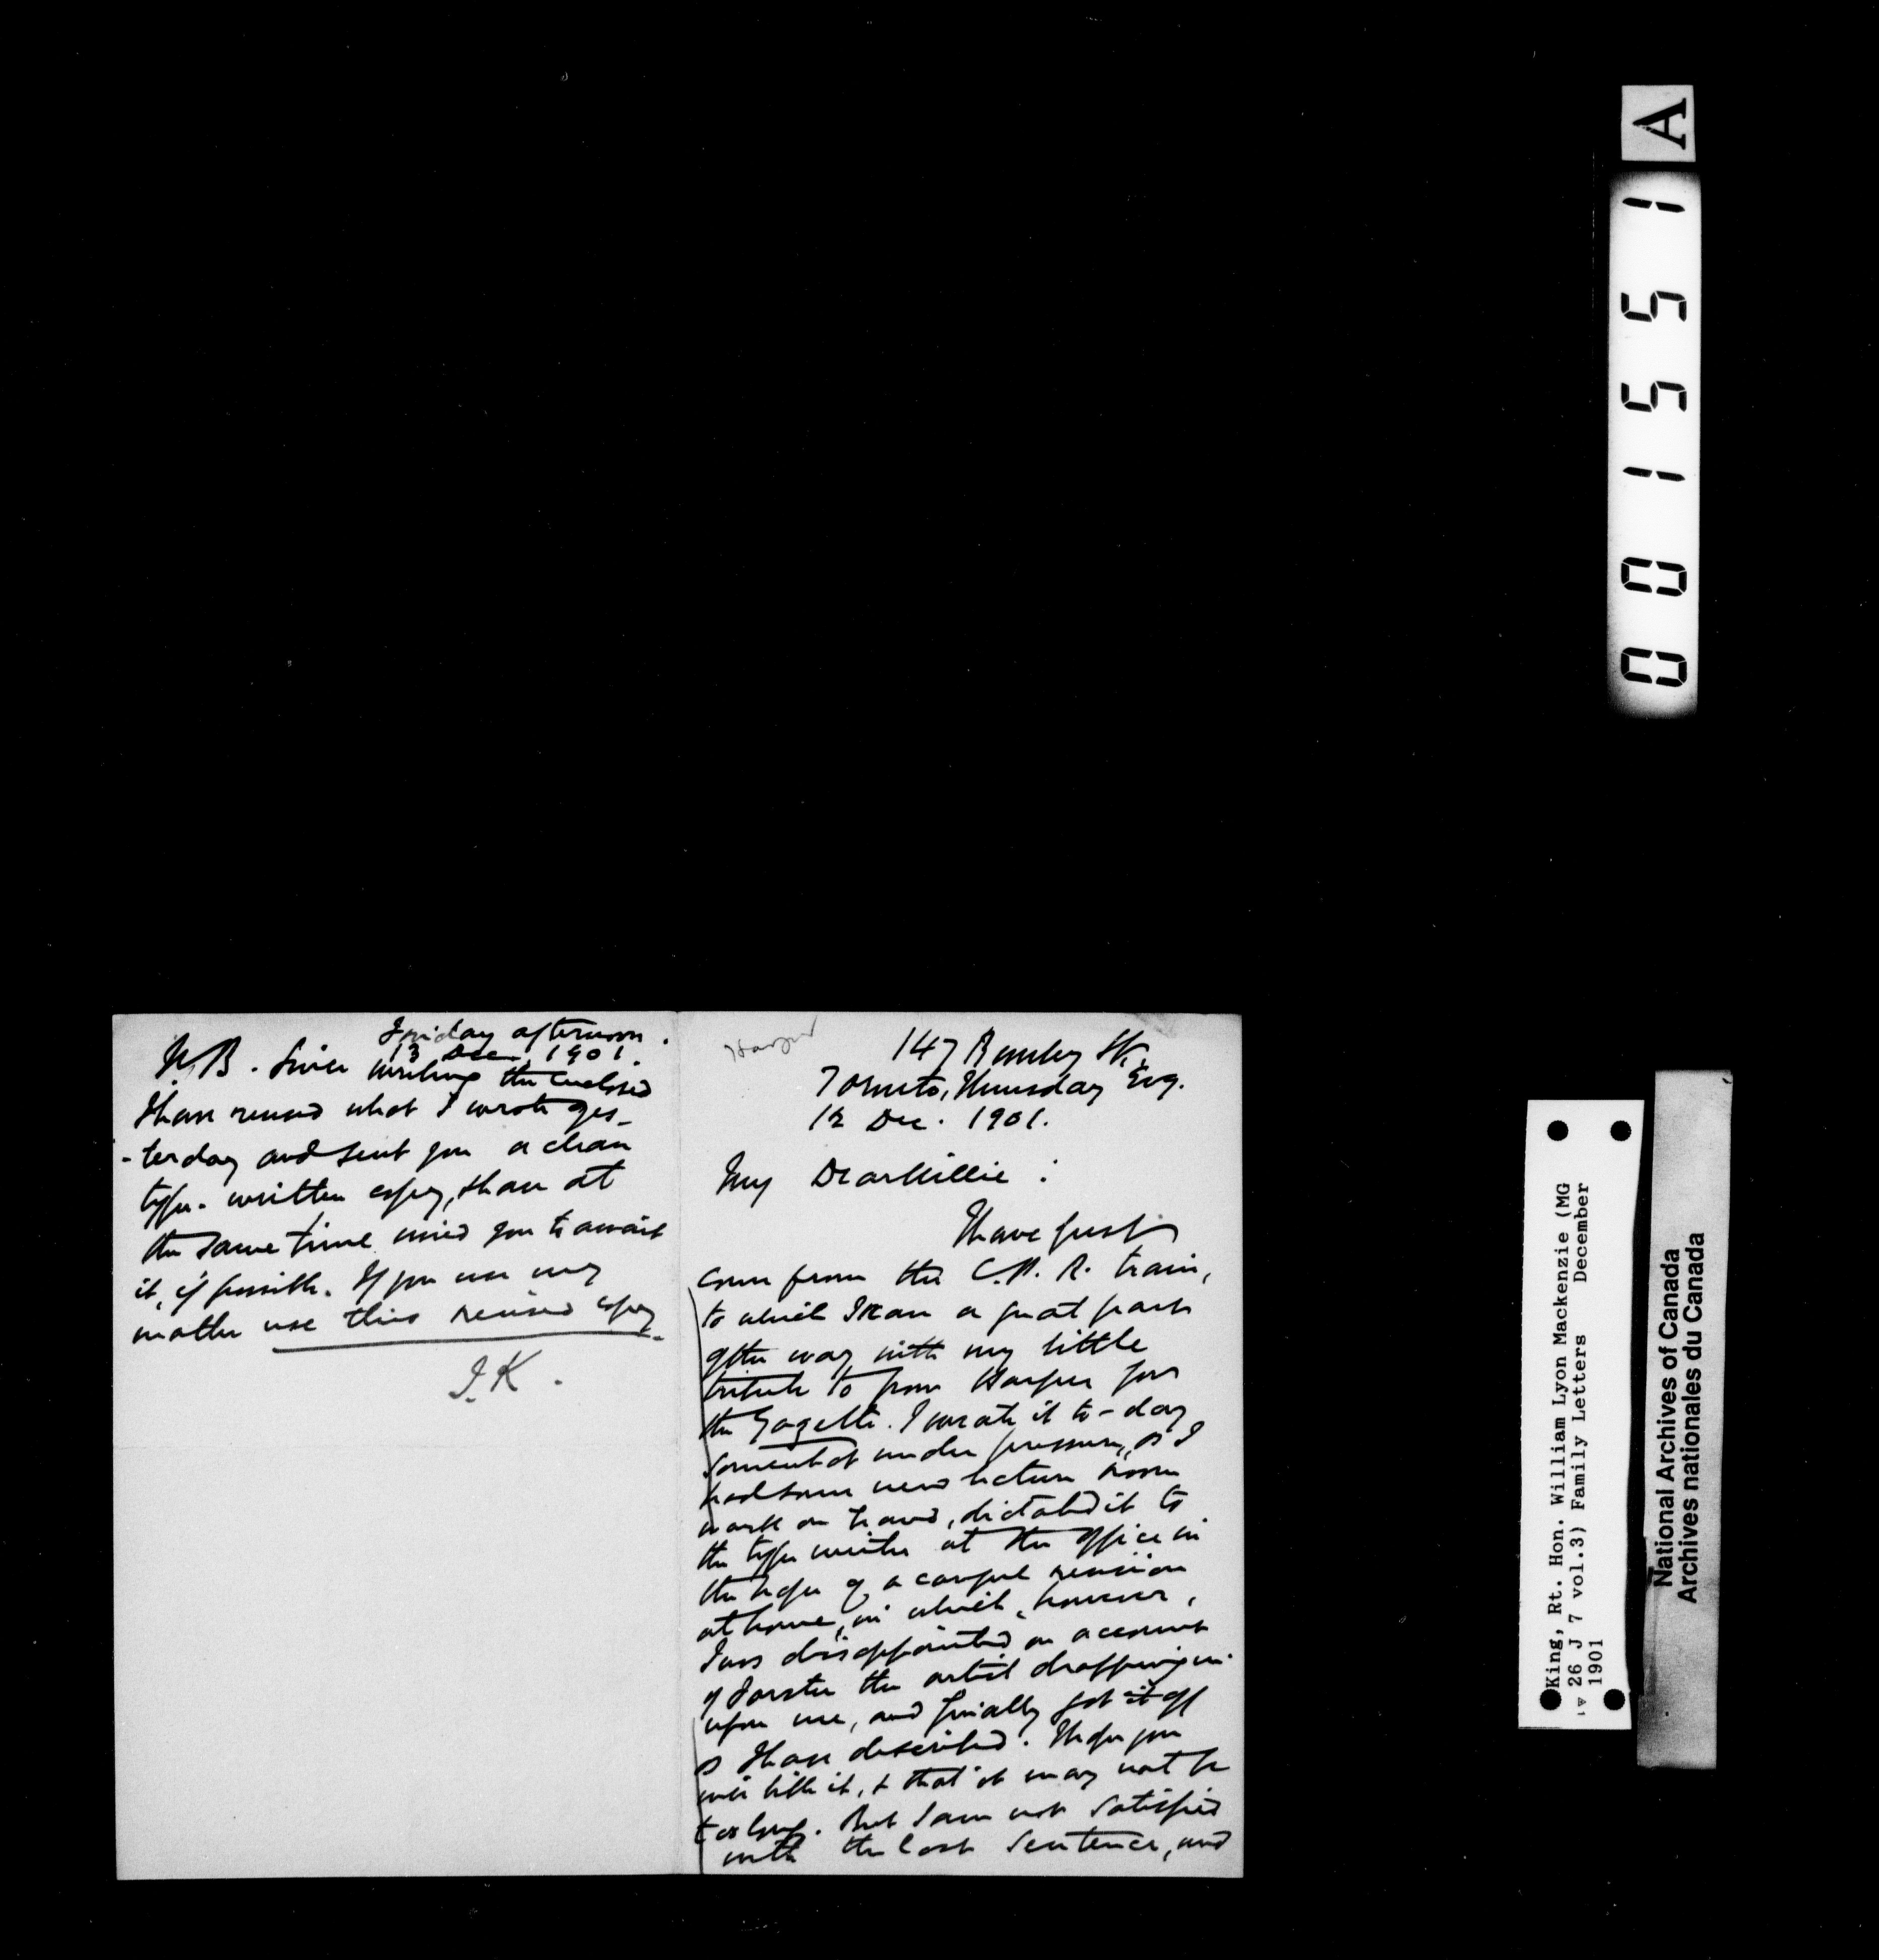 Friday afternoon.
13 Dec. 1901.
N.B. Since writing the enclosed
I have revised what I wrote yes-
-terday and sent you a clean
type-written copy, & have at
the same time wired you to await
it, if possible. If you use my
matter use this revised copy.
J.K.
Harper
147 Beverley St.,
Toronto, Thursday Evg.
12 Dec. 1901.
My Dear Willie:
I have just
come from the C.P.R. train,
to which I ran a great part
of the way with my little
tribute to poor Harper for
the Gazette. I wrote it to-day
somewhat under pressure, as I
had some new lecture room
work on hand, dictated it to
the type writer at the office in
the hope of a careful revision
at home, in which, however,
I was disappointed on account
of Forster the artist dropping in
upon me, and finally got it off
as I have described. I hope you
will like it, & that it may not be
too long. But I am not satisfied
with the last sentence, and
A
001551
King, Rt. Hon. William Lyon Mackenzie (MG
26 J 7 vol.3) Family Letters December
1901
National Archives of Canada
Archives nationales du Canada